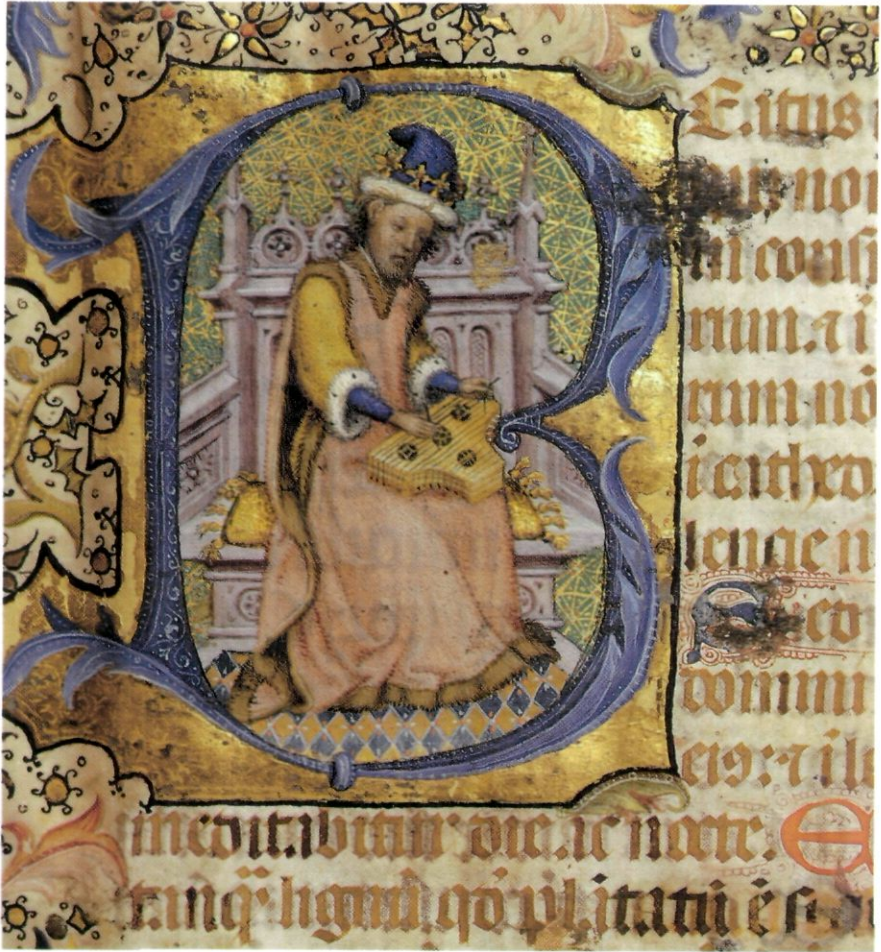 B Eatus
no
in consi
rum. ⁊ i
rum nō
i cathed
lencie n
domini
eiꝰ: ⁊ i le
meditabitur die ac nocte. E
tanq̄ lignū qō plātatū ē se